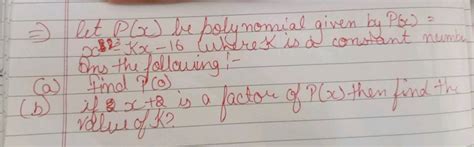 ⇒ let P(x) be polynomial given by P(x) =
- Kx - 16 (where K is a constant numbe
Ans the following :-
(a) find P(0)
(b) if x+2 is a factor of P(x) then find the
value of K?